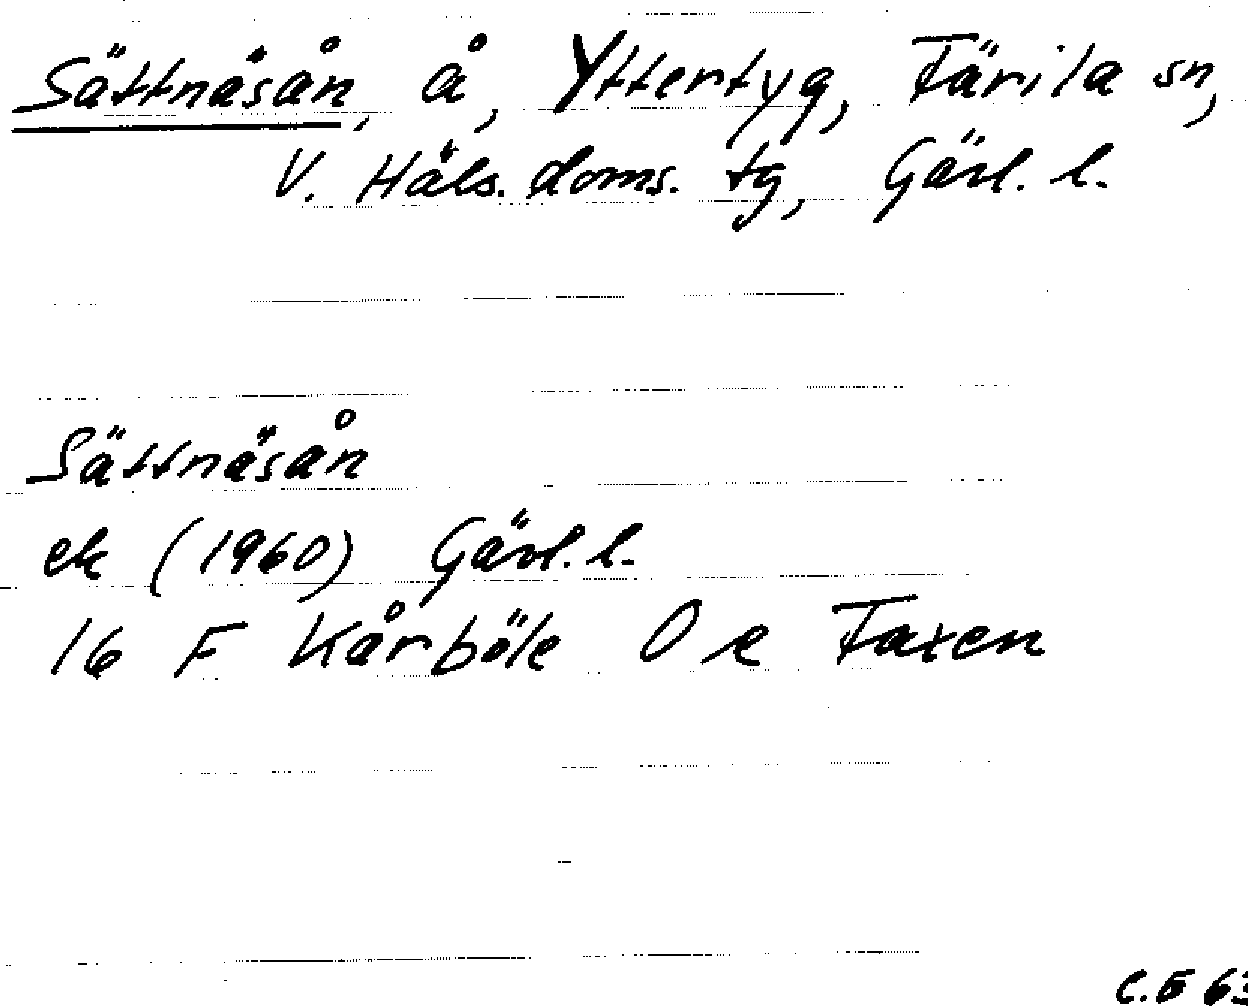 Sättnäsån, å, Yttertyg, Färila sn,
V. Häls. doms. tg, Gävl. l.
Sättnäsån
ek (1960) Gävl. l.
16 F Kårböle O e Faxen
C.E 63